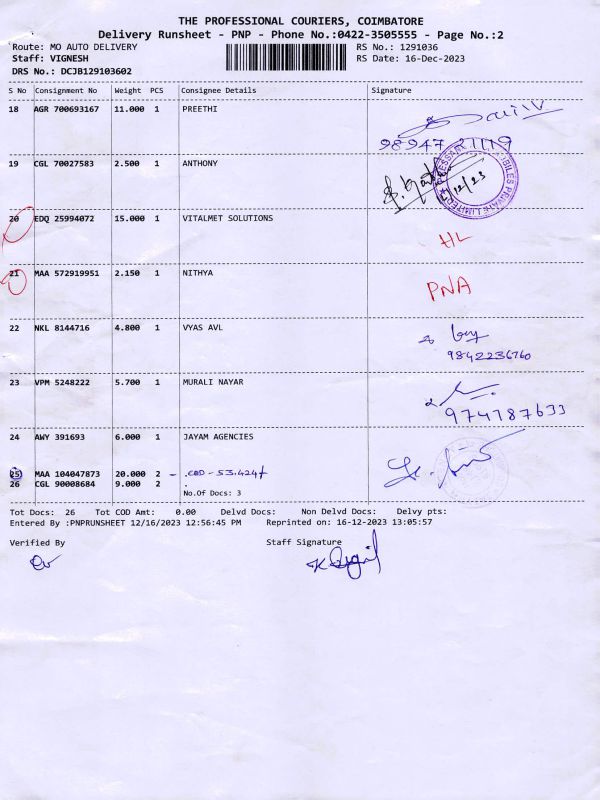 THE PROFESSIONAL COURIERS, COIMBATORE
Delivery Runsheet - PNP - Phone No.:0422-3505555 - Page No.:2
Route: MO AUTO DELIVERY RS No.: 1291036
Staff: VIGNESH RS Date: 16-Dec-2023
DRS No.: DCJB129103602
S No Consignment No Weight PCS Consignee Details Signature
18 AGR 700693167 11.000 1 PREETHI
19 CGL 70027583 2.500 1 ANTHONY
12/12/23
20 EDQ 25994072 15.000 1 VITALMET SOLUTIONS
HL
21 MAA 572919951 2.150 1 NITHYA
PNA
22 NKL 8144716 4.800 1 VYAS AVL
9842236760
23 VPM 5248222 5.700 1 MURALI NAYAR
974787633
24 AWY 391693 6.000 1 JAYAM AGENCIES
25 MAA 104047873 20.000 2 - .COD - 53.424/
26 CGL 90008684 9.000 2 .
No.Of Docs: 3
Tot Docs: 26 Tot COD Amt: 0.00 Delvd Docs: Non Delvd Docs: Delvy pts:
Entered By :PNPRUNSHEET 12/16/2023 12:56:45 PM Reprinted on: 16-12-2023 13:05:57
Verified By Staff Signature